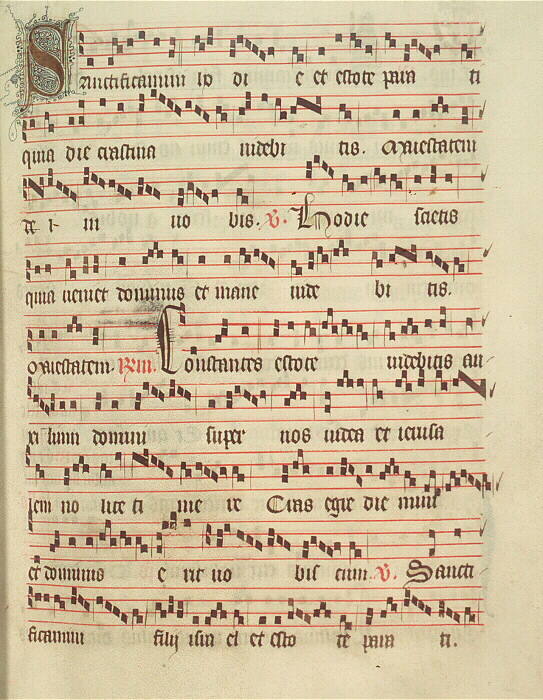 Sanctificamini ho di e et estote para ti
quia die crastina videbi tis. Maiestatem
de i in no bis. V. Hodie scietis
quia veniet dominus et mane vide bi tis.
Maiestatem Rm. Constantes estote videbitis au
xi lium domini super vos iudea et ierusa
lem no lite ti me re Cras egre die mini
et dominus e rit vo bis cum. V. Sancti
ficamini filij isra el et esto te para ti.